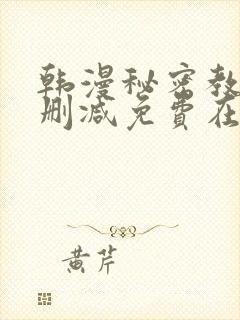 韩漫秘密教
删减免费在
黄芹